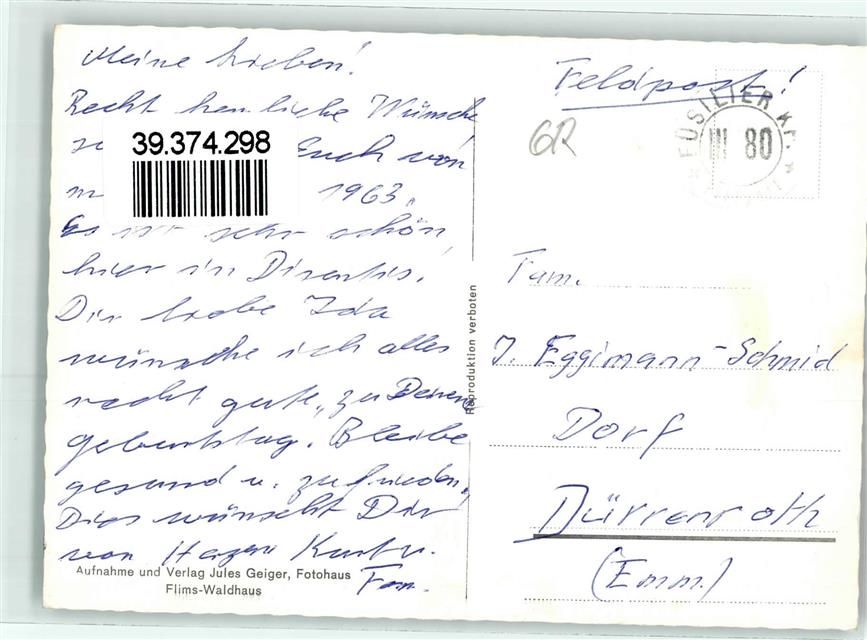 Meine Lieben!
Recht herzliche Wünsche
Euch von
1963.
Es ist sehr schön
hier in Disentis.
Dir liebe Ida
wünsche ich alles
recht gute, zu Deinem
geburtstag. Bleibe
gesund u. zufrieden,
Dies wünscht Dir
von Herzen Kurt u.
Fam.
39.374.298
Aufnahme und Verlag Jules Geiger, Fotohaus
Flims-Waldhaus
Reproduktion verboten
Feldpost!
GR
FÜSILIER Kp. *
III 80
Fam.
J. Eggimann-Schmid
Dorf
Dürrenroth
(Emm.)